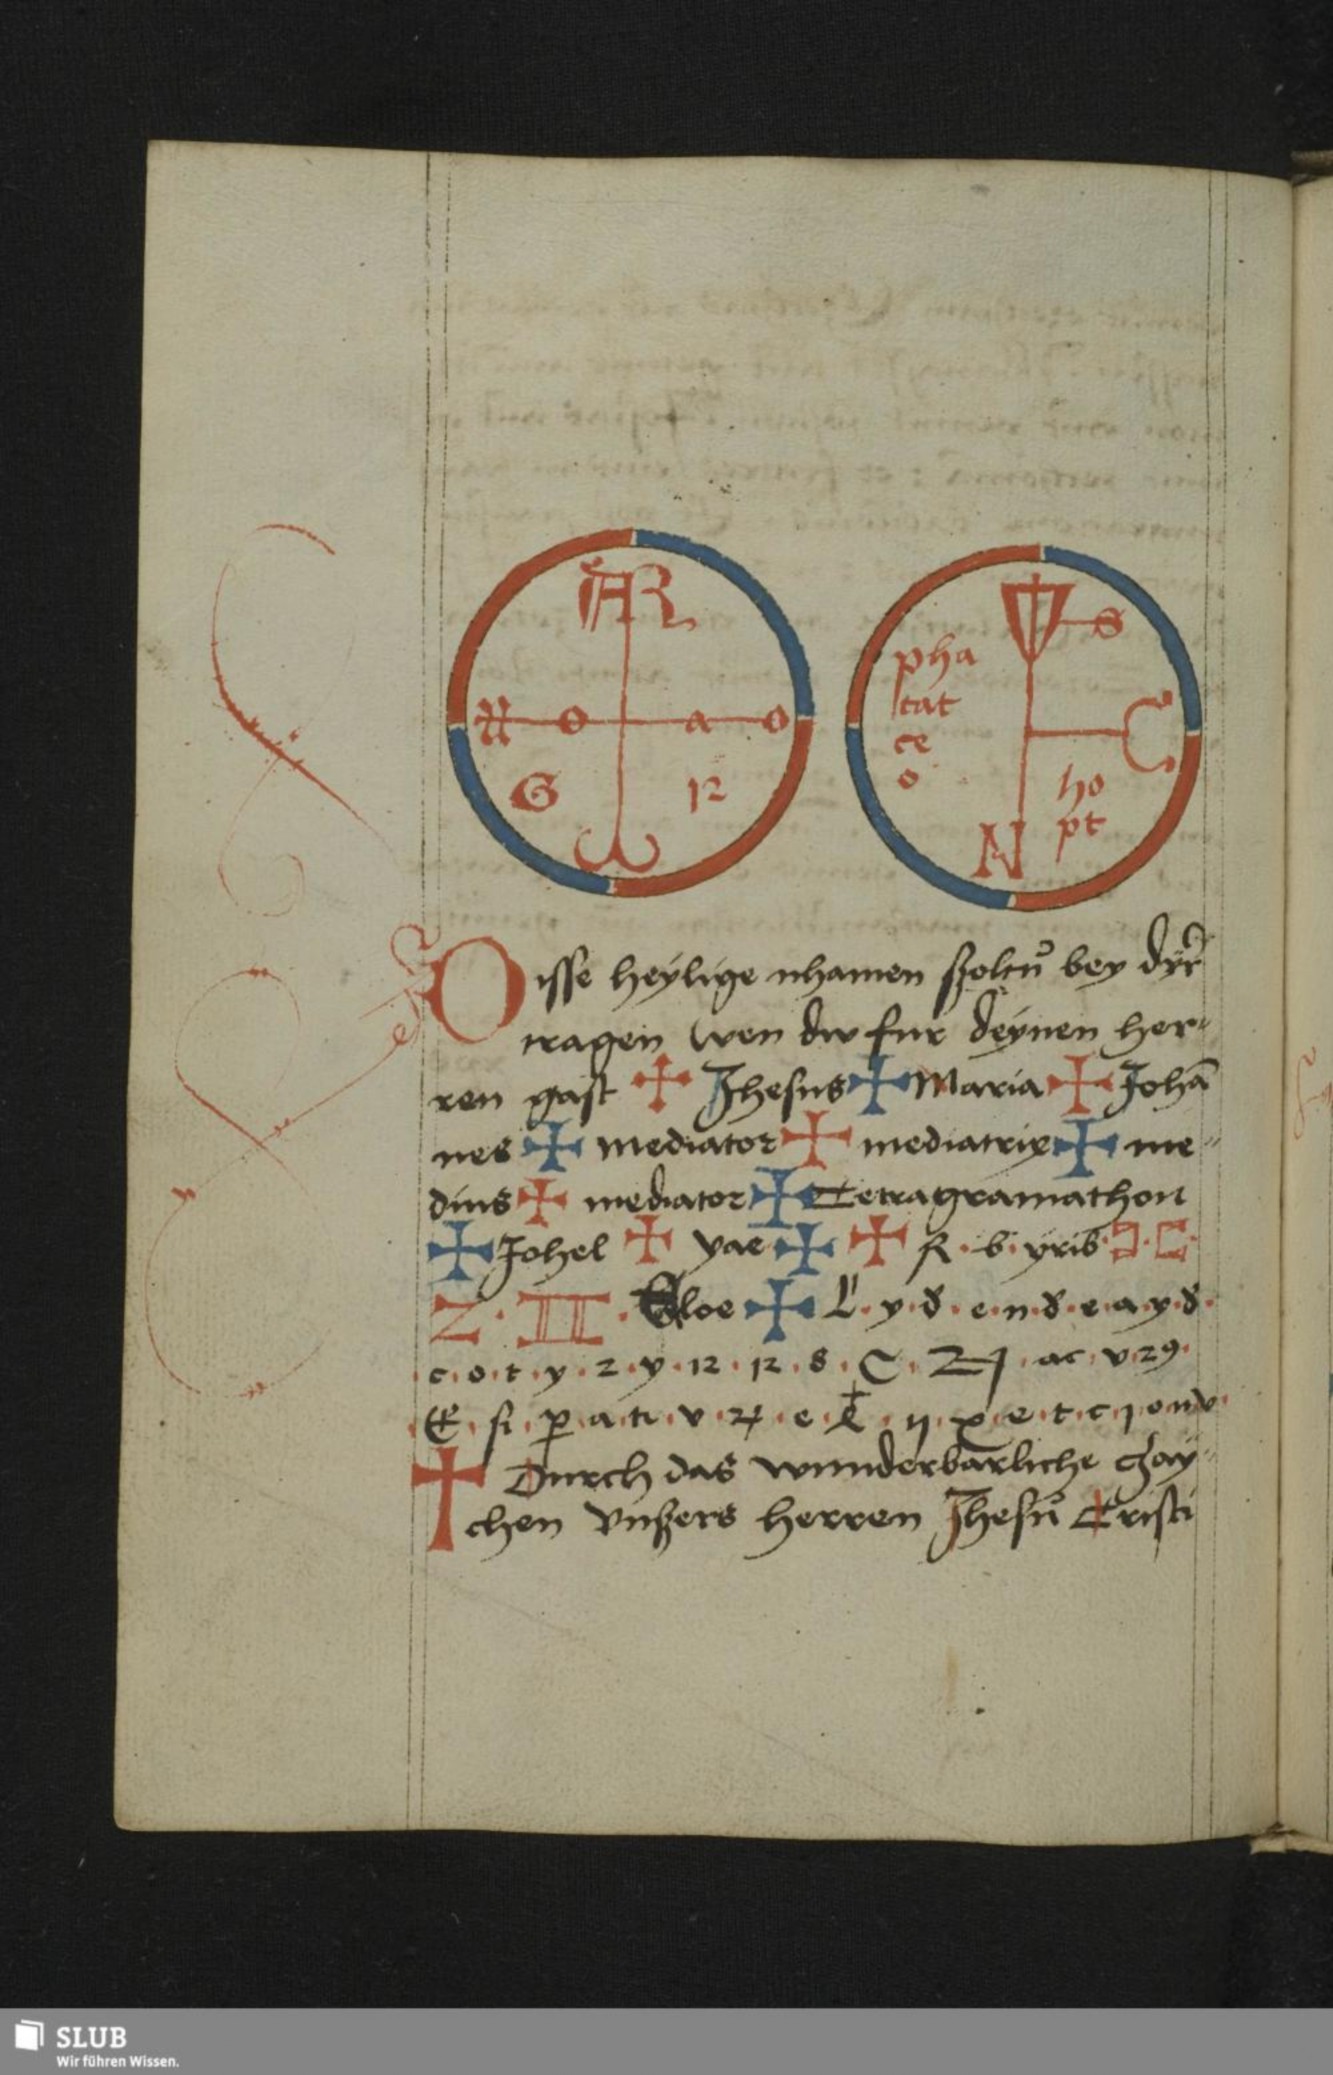 AR
o a o
G 12
S
pha
tat
ce
o
C
ho
pt
N
Disse heylige nhamen szoltu bey dyr
tragen wen dw fur deynen her-
ren gast ✠ Jhesus ✠ Maria ✠ Johā
nes ✠ mediator ✠ mediatrix ✠ me-
dius ✠ mediator ✠ Tetragramathon
✠ Johel ✠ yae ✠ ✠ R · b · yrib ·
Z · II · Eloe ✠ L · y · d · e · n · d · e · a · y · d ·
· c · o · t · y · 2 · y · 12 · 12 · 8 · C · · ac · v · 29 ·
· E · si · p · a · ti · v · 4 · e · · y · x · e · t · c · j · o · n · v ·
✝ Durch das wunderbarliche czay-
chen vnszers herren Jhesu Cristi
SLUB
Wir führen Wissen.